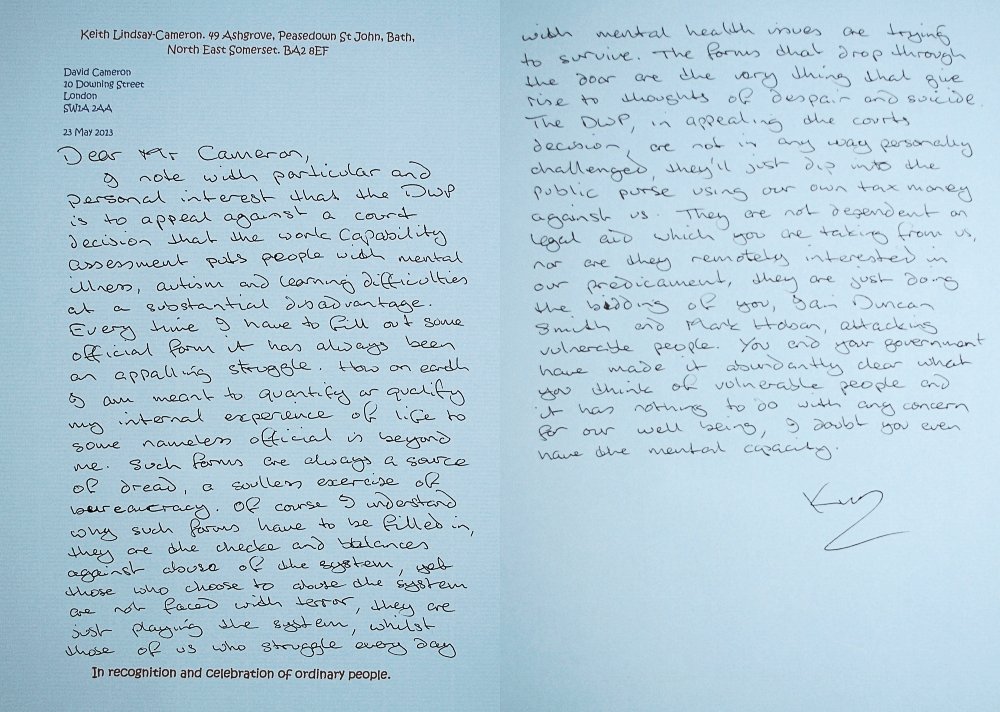 Keith Lindsay-Cameron. 49 Ashgrove, Peasedown St John, Bath,
North East Somerset. BA2 8EF
David Cameron
10 Downing Street
London
SW1A 2AA
23 May 2013
Dear Mr Cameron,
I note with particular and
personal interest that the DWP
is to appeal against a court
decision that the work Capability
assessment puts people with mental
illness, autism and learning difficulties
at a substantial disadvantage.
Every time I have to fill out some
official form it has always been
an appalling struggle. How on earth
I am meant to quantify or qualify
my internal experience of life to
some nameless official is beyond
me. Such forms are always a source
of dread, a soulless exercise of
bureaucracy. Of course I understand
why such forms have to be filled in,
they are the checks and balances
against abuse of the system, yet
those who choose to abuse the system
are not faced with terror, they are
just playing the system, whilst
those of us who struggle every day
In recognition and celebration of ordinary people.
with mental health issues are trying
to survive. The forms that drop through
the door are the very thing that give
rise to thoughts of despair and suicide.
The DWP, in appealing the courts
decision, are not in any way personally
challenged, they'll just dip into the
public purse using our own tax money
against us. They are not dependent on
legal aid which you are taking from us,
nor are they remotely interested in
our predicament, they are just doing
the bidding of you, Iain Duncan
Smith and Mark Hoban, attacking
vulnerable people. You and your government
have made it abundantly clear what
you think of vulnerable people and
it has nothing to do with any concern
for our well being, I doubt you even
have the mental capacity.